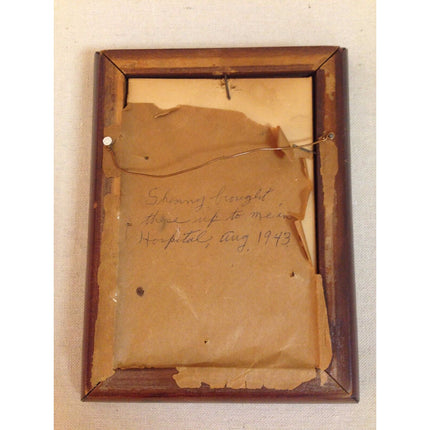 Skinny brought
these up to me in
Hospital, Aug 1943